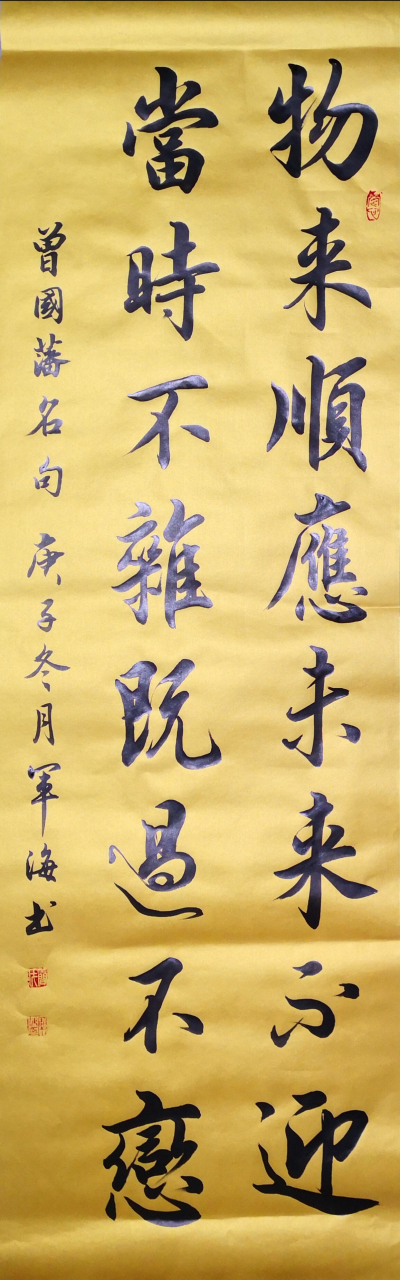 物来順應未来不迎
當時不雜既過不戀
曾國藩名句 庚子冬月軍海书